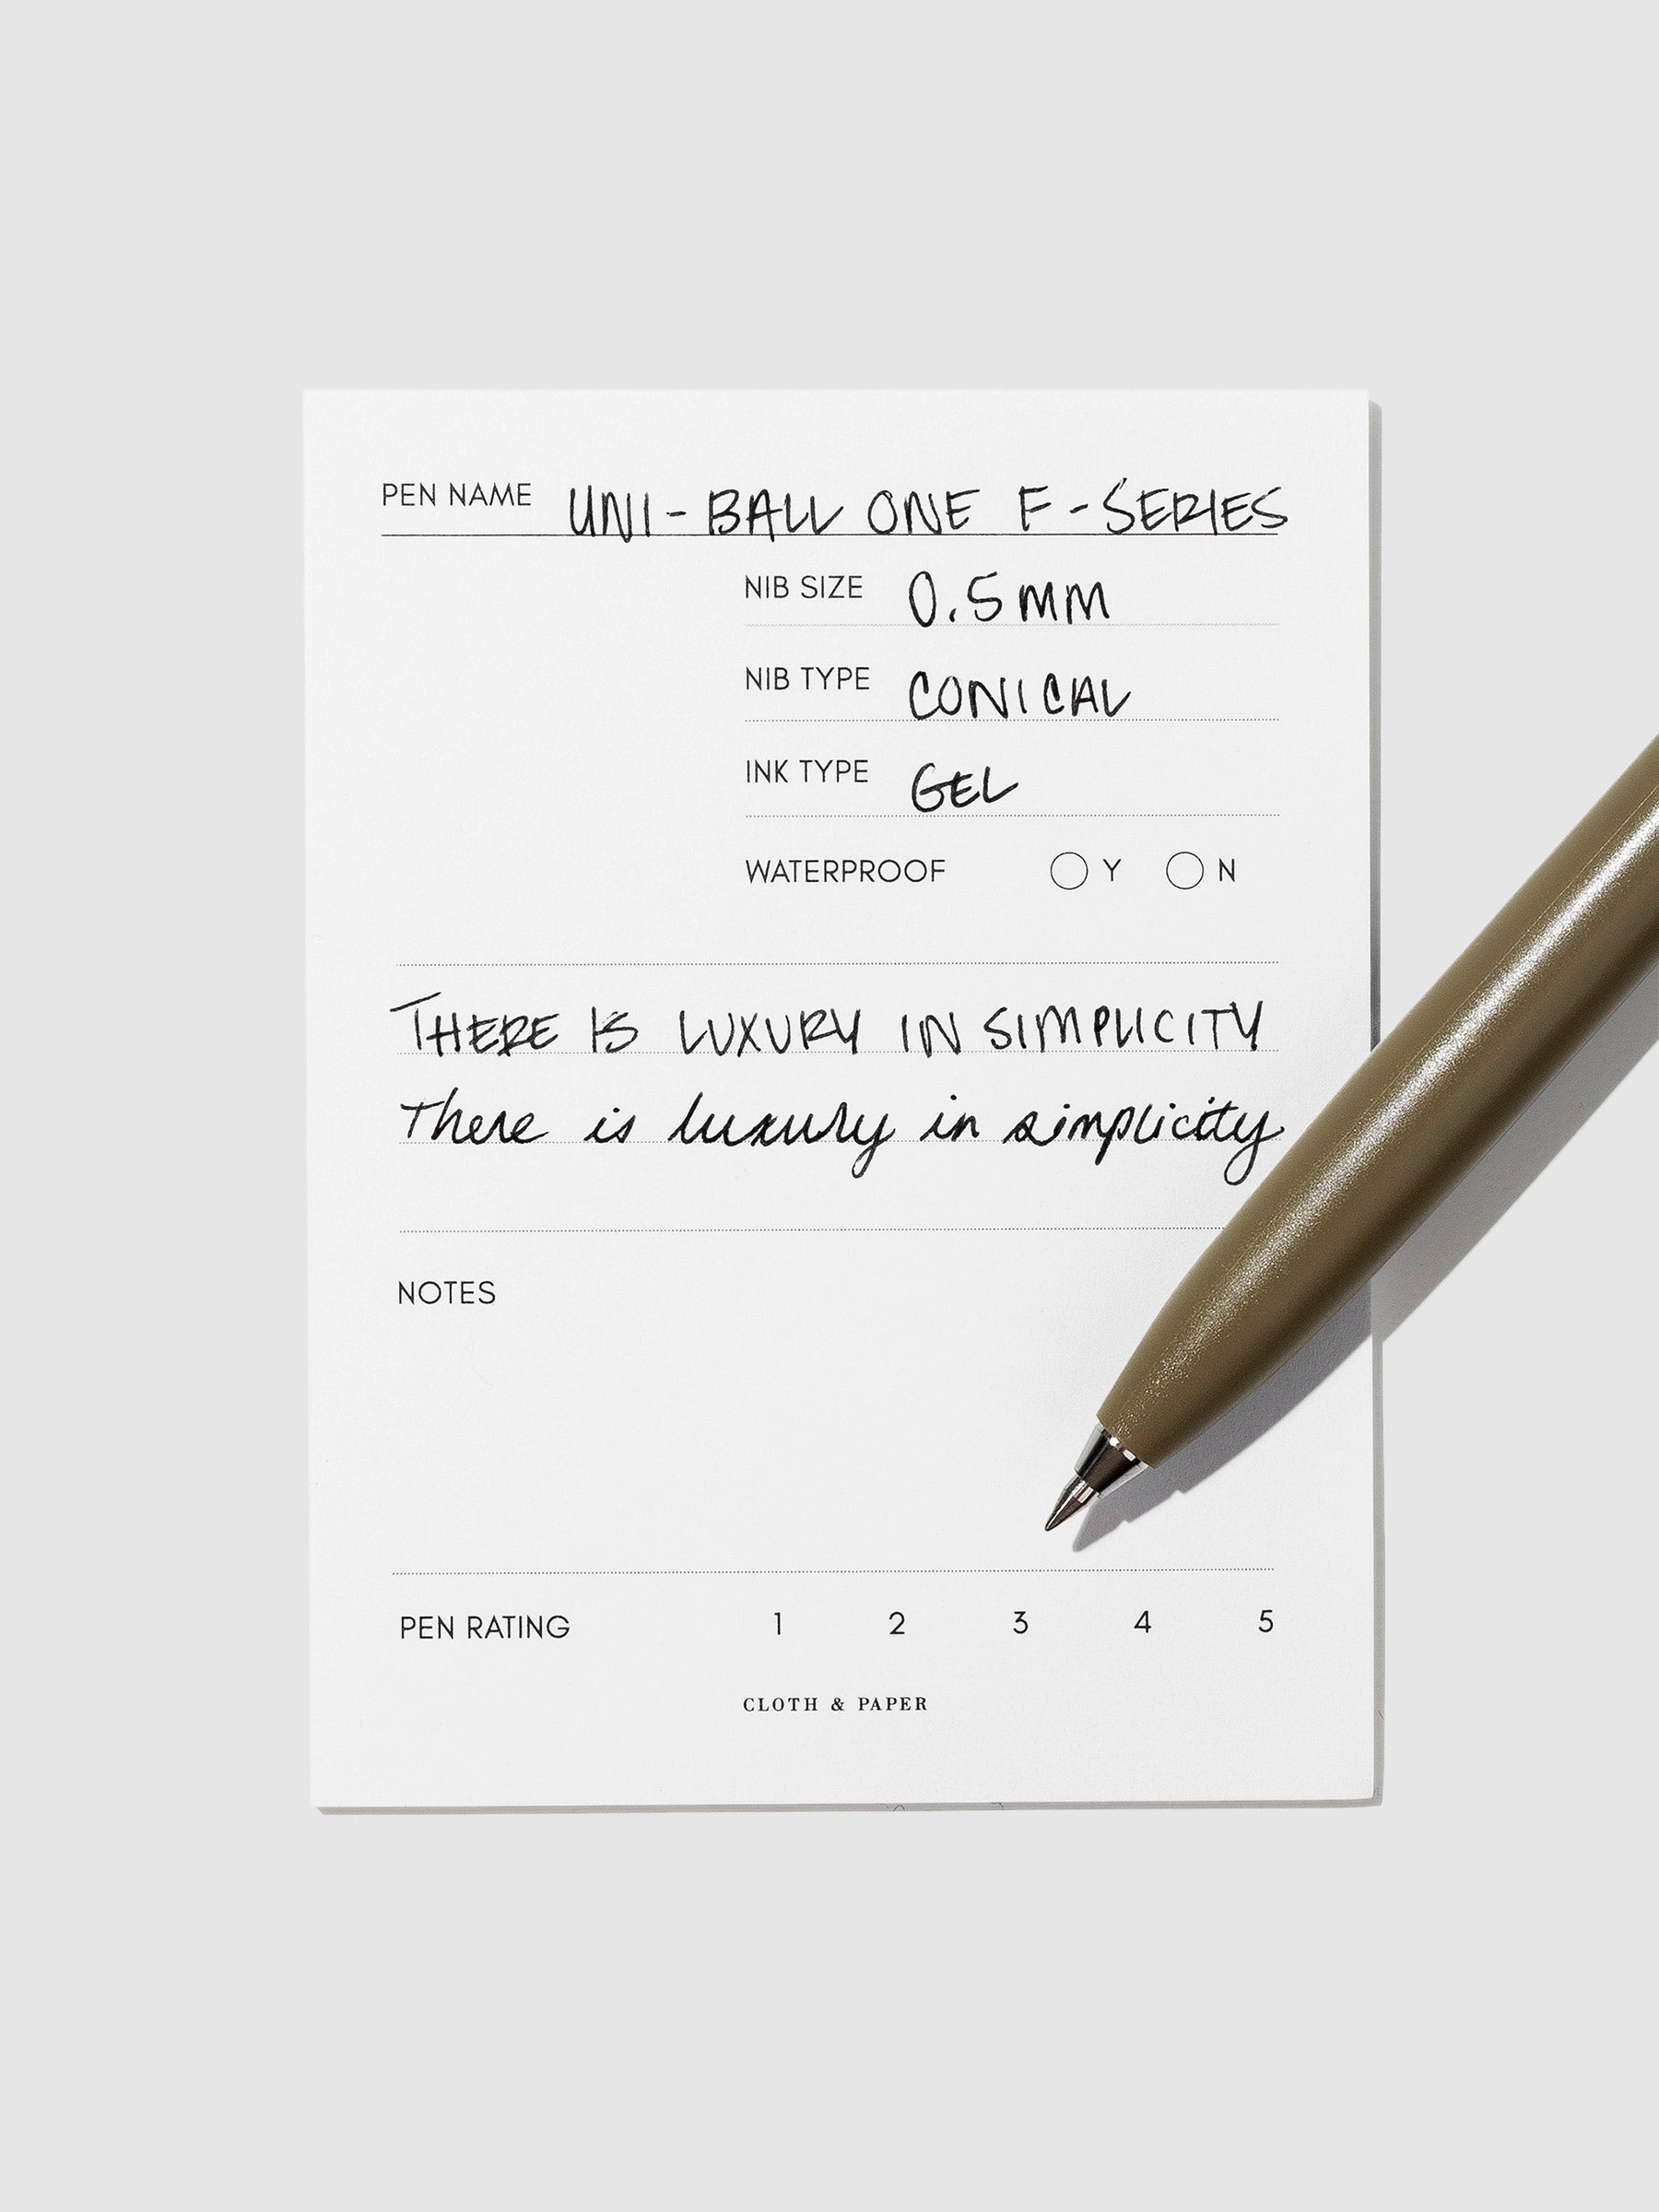 PEN NAME UNI-BALL ONE F-SERIES
NIB SIZE 0.5mm
NIB TYPE CONICAL
INK TYPE GEL
WATERPROOF Y N
THERE IS LUXURY IN SIMPLICITY
There is luxury in simplicity
NOTES
PEN RATING 1 2 3 4 5
CLOTH & PAPER